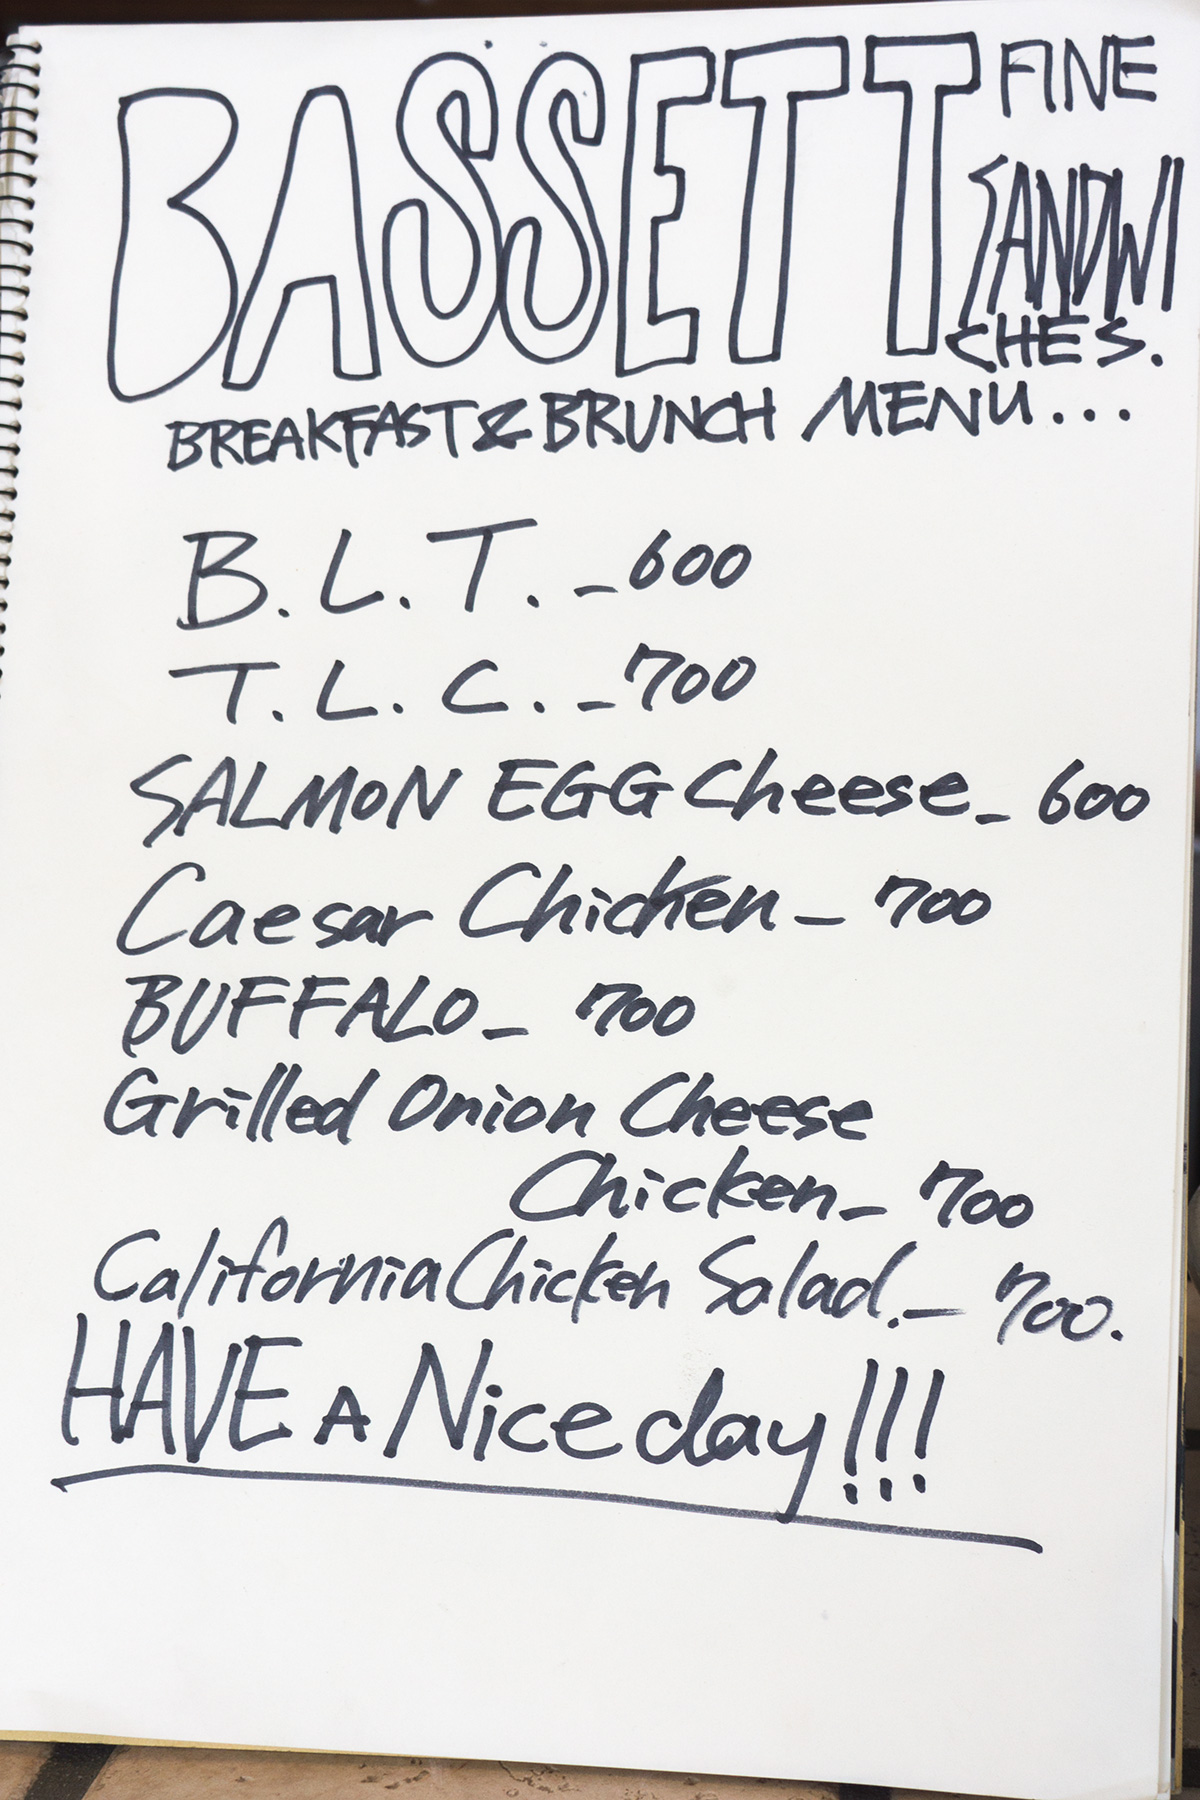 BASSETT FINE
SANDWI
CHES.
BREAKFAST & BRUNCH MENU...
B.L.T. - 600
T.L.C. - 700
SALMON EGG Cheese - 600
Caesar Chicken - 700
BUFFALO - 700
Grilled Onion Cheese
Chicken - 700
California Chicken Salad. - 700.
HAVE A Nice day!!!